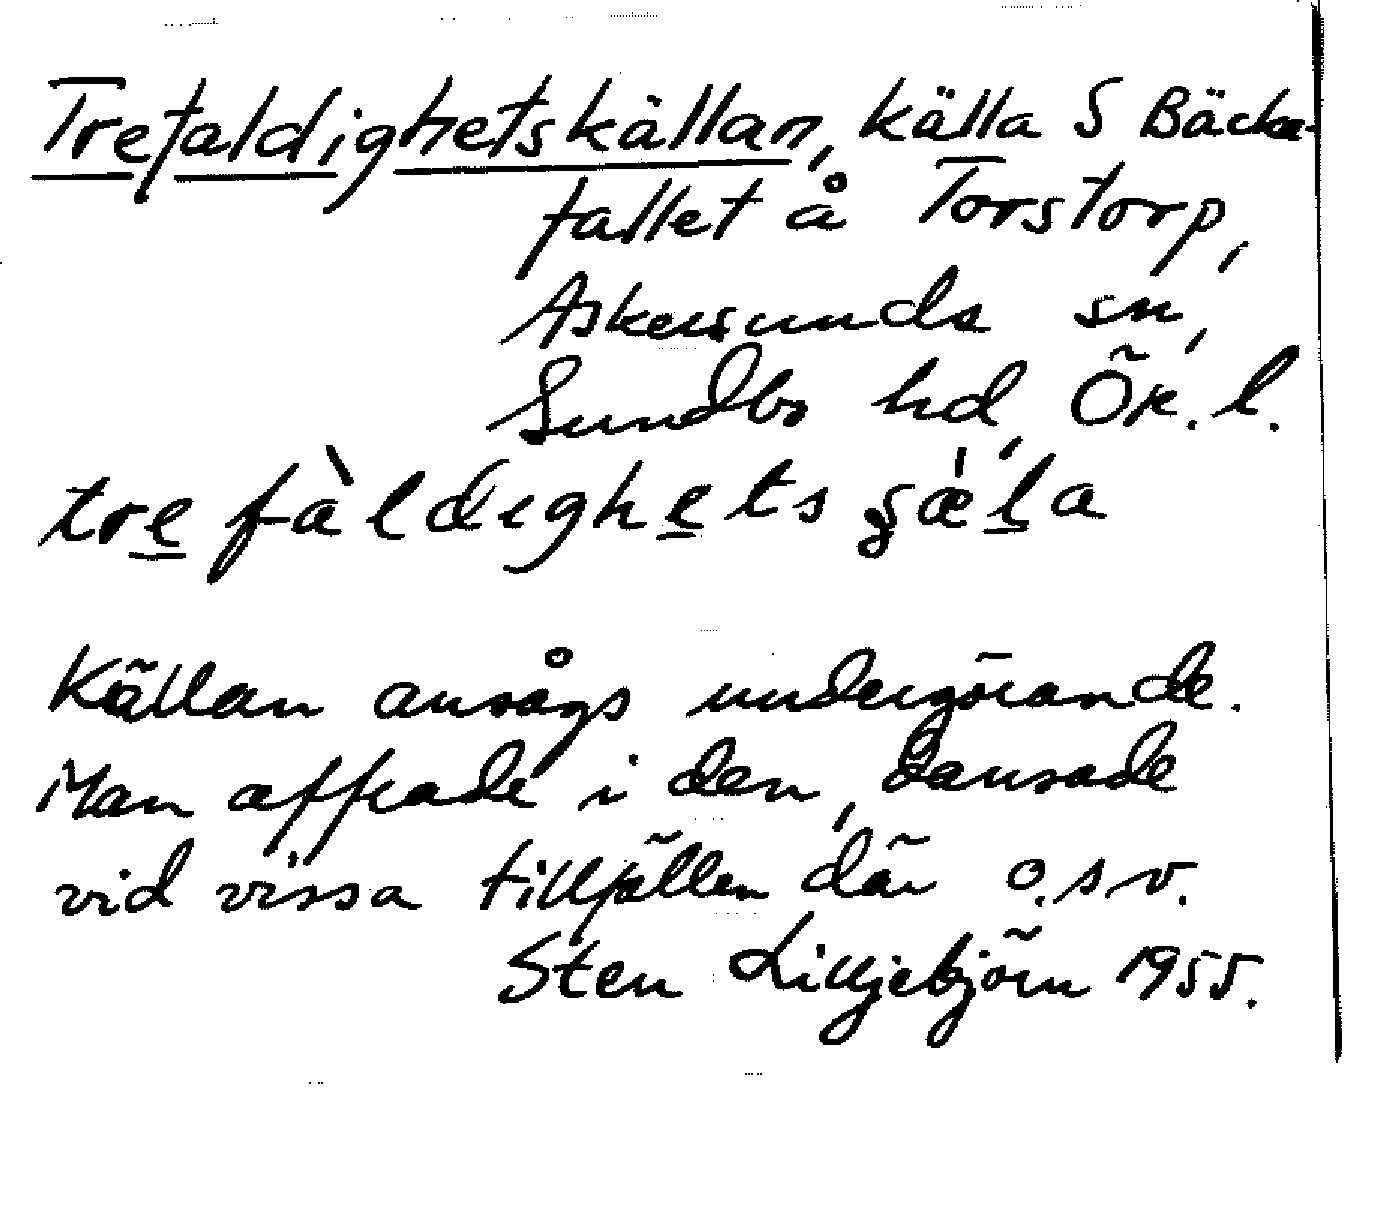 Trefaldighetskällan, källa S Bäcka-
fallet å Torstorp,
Askersunds sn,
Sundbo hd, Ör. l.
tre fàldighets ʂæ̍la
Källan ansågs undergörande.
Man offrade i den, dansade
vid vissa tillfällen där o.s.v.
Sten Lilljebjörn 1955.